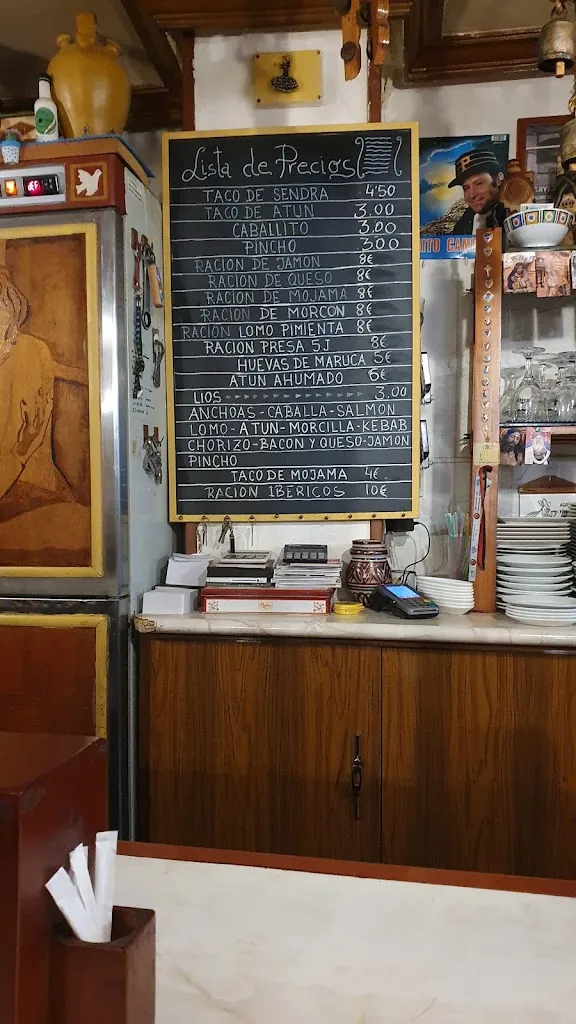 Lista de Precios
TACO DE SENDRA 4'50
TACO DE ATUN 3,00
CABALLITO 3,00
PINCHO 3,00
RACION DE JAMON 8€
RACION DE QUESO 8€
RACION DE MOJAMA 8€
RACION DE MORCON 8€
RACION LOMO PIMIENTA 8€
RACION PRESA 5J 8€
HUEVAS DE MARUCA 5€
ATUN AHUMADO 6€
LIOS 3,00
ANCHOAS-CABALLA-SALMON
LOMO-ATUN-MORCILLA-KEBAB
CHORIZO-BACON Y QUESO-JAMON
PINCHO
TACO DE MOJAMA 4€
RACION IBERICOS 10€